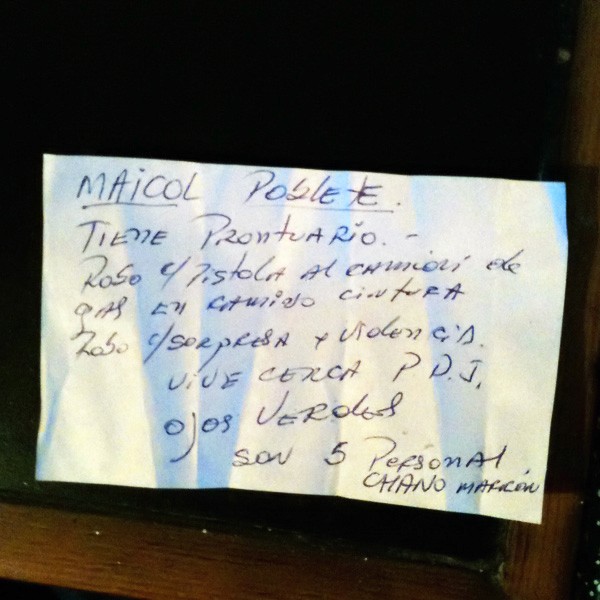 MAICOL POBLETE.
TIENE PRONTUARIO. -
ROBO C/PISTOLA AL CAMION de
GAS EN CAMINO CINTURA
ROBO C/SORPRESA Y VIOLENCIA.
VIVE CERCA P.D.I.
OJOS VERDES
SON 5 PERSONAL
CHANO MARICÓN